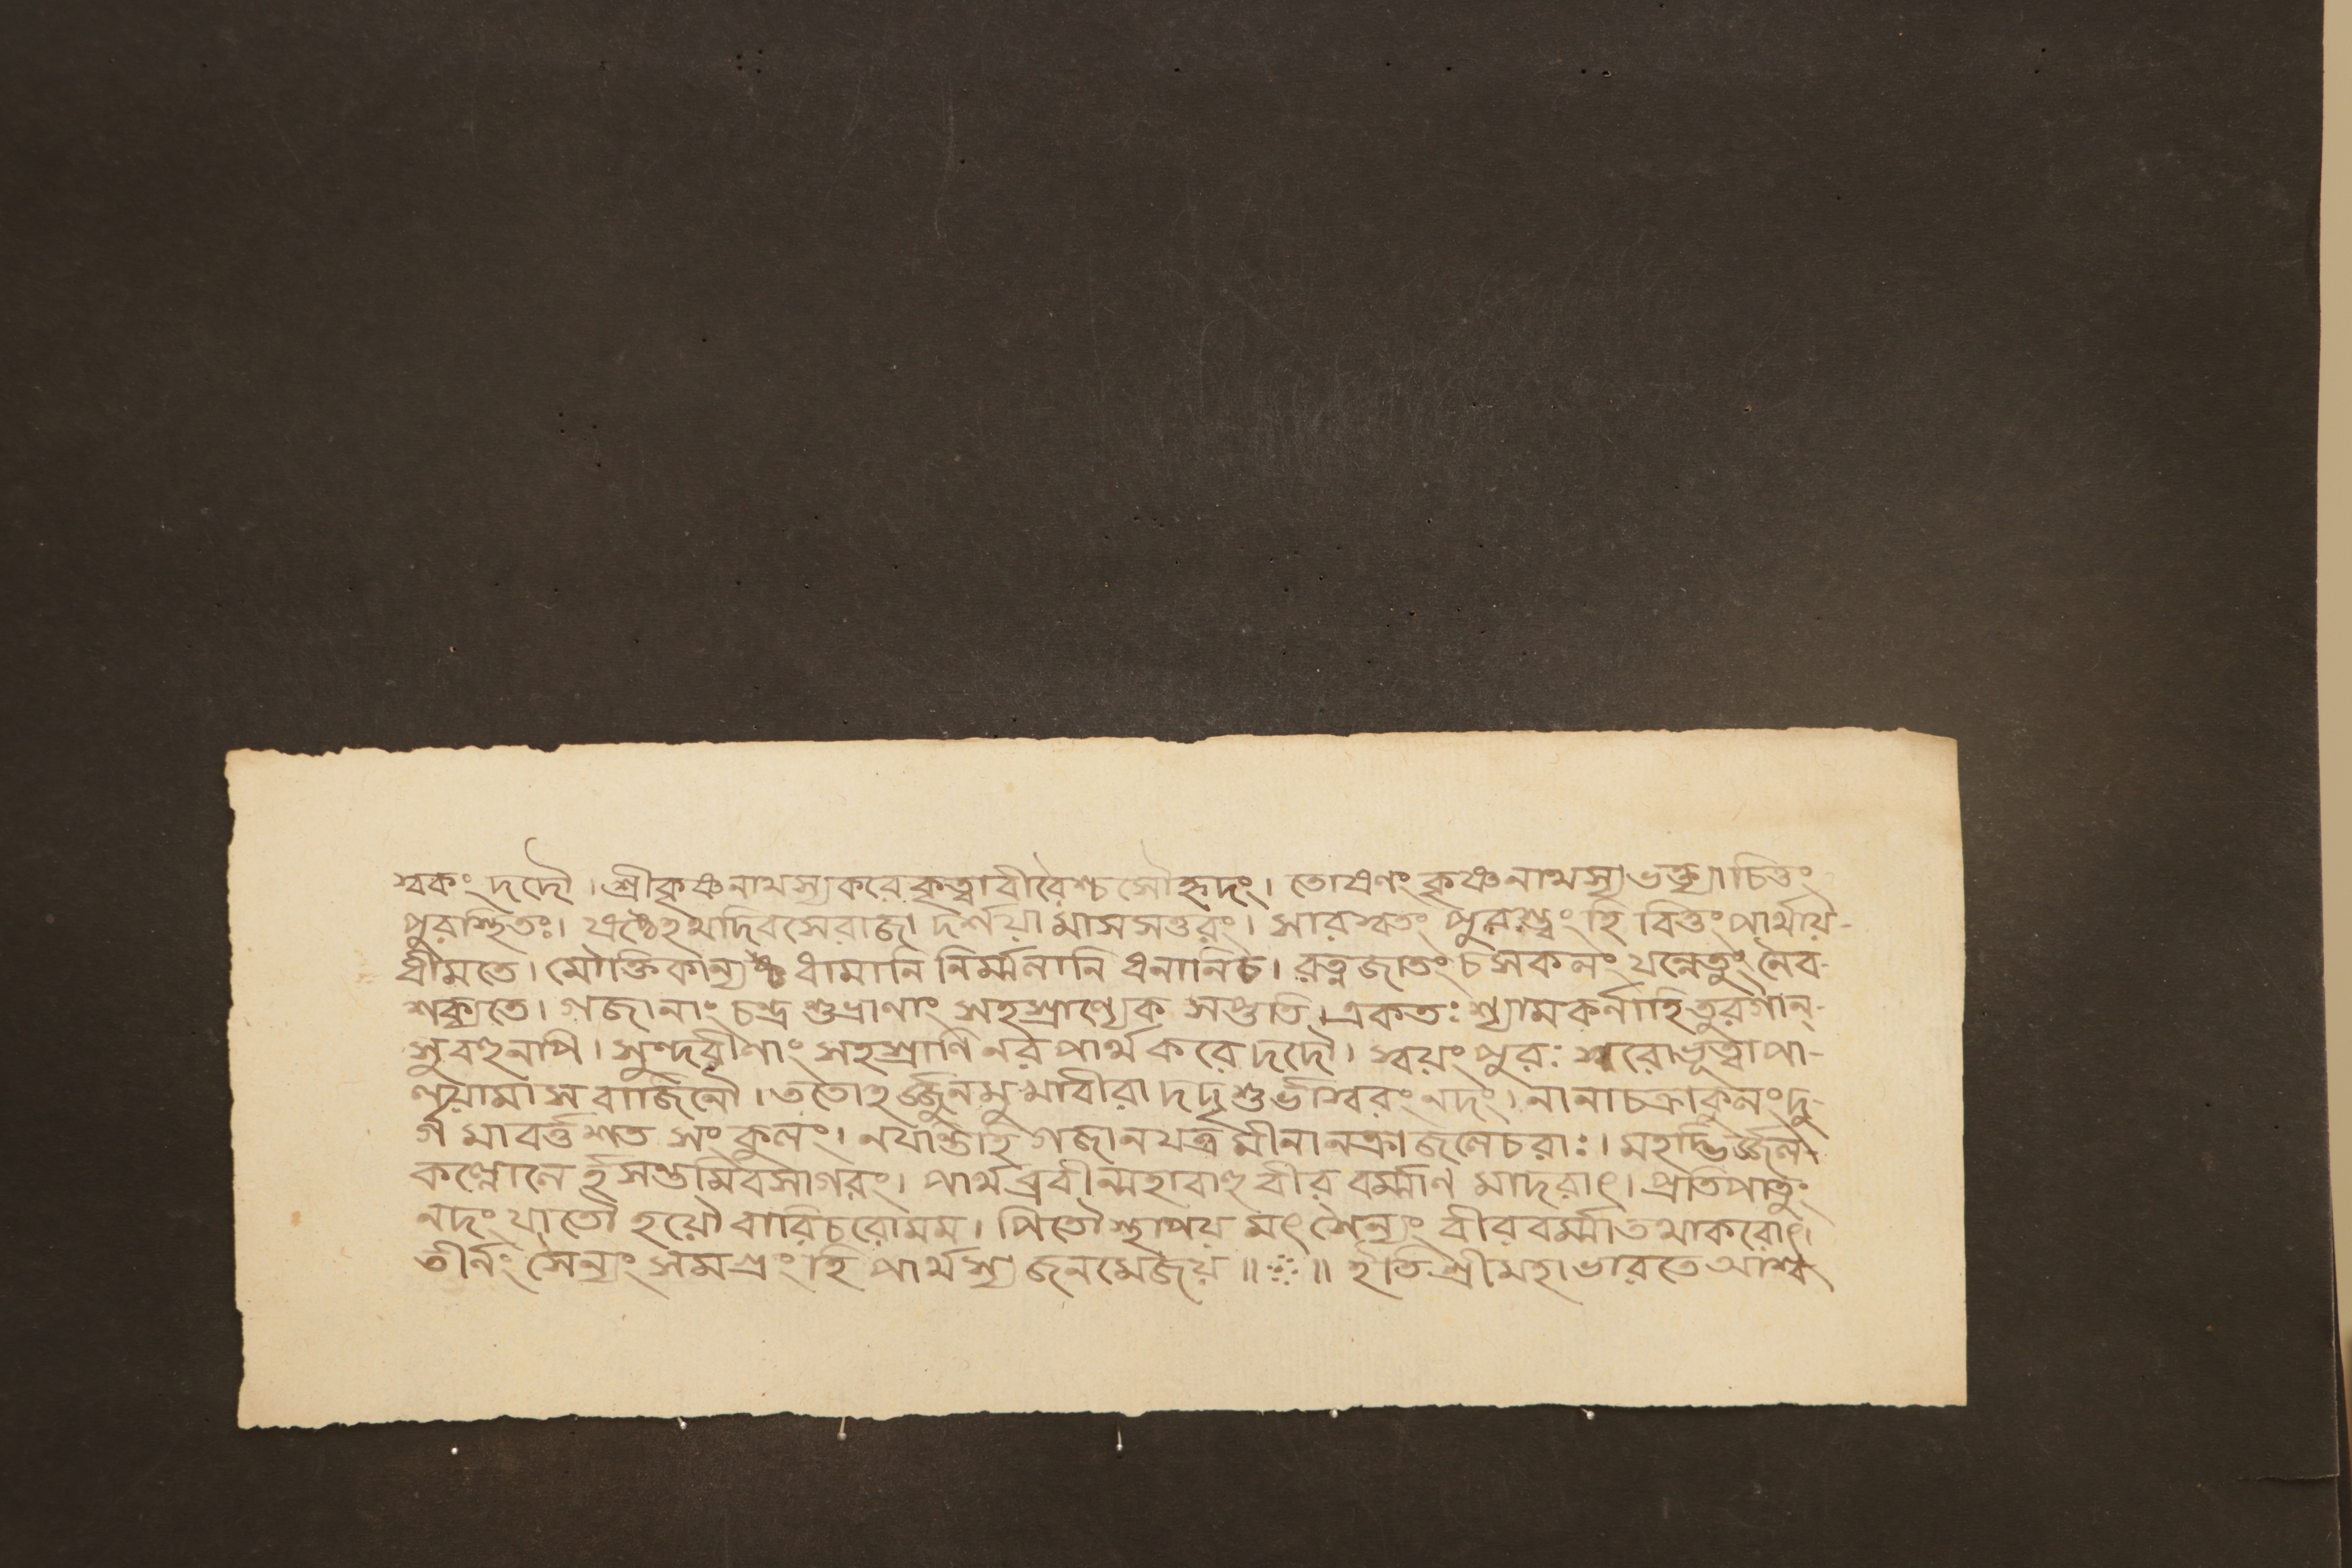 স্বকং দদৌ। শ্রীকৃষ্ণনাথস্য করে কৃত্বা বীরৈশ্চ সৌহৃদং। তোষণং কৃষ্ণনাথস্য ভক্ত্যা চিত্তং
পুরস্থিতঃ। ষষ্ঠেহথ দিবসে রাজা দর্শয়ামাস সত্তরং। সারস্বতং পুরশ্চৈবং হি বিত্তং পার্থায়-
ধীমতে। মৌক্তিকান্যথ ধামানি নির্ম্মলানি ধনানিচ। রত্নজাতং চ সকলং যন্নেতুং নৈব-
শক্যতে। গজানাং চন্দ্র শুভ্রাণাং সহস্রাণ্যেক সপ্ততি। একতঃ শ্যামকর্নাহি তুরগান্-
সুবহুনপি। সুন্দরীণাং সহশ্রাণি নর পার্থ করে দদৌ। স্বয়ং পুরঃ শরো ভূত্বা পা-
লয়ামাস বাজিনৌ। ততোহর্জ্জুনমুখাবীরা দদৃশুর্ভাস্বরং নদং। নানাচক্রাকুলং দু-
র্গ মাবর্ত্তশত সংকুলং। নযান্তীহি গজানযত্র মীনানক্রা জলেচরাঃ। মহদ্ভির্জ্জল
কল্লোলৈ র্হসন্তমিবসাগরং। পার্থব্রবীন্মহাবাহু বীর বর্ম্মাণ মাদরাৎ। প্রতিপাতুং
নদং যাতৌ হয়ৌ বারিচরোমম। পিতৌ স্থাপয় মৎ সৈন্যং বীরবর্ম্মাতথাকরোৎ।
তীর্নং সৈন্যং সমগ্রং হি পার্থস্য জনমেজয় ॥ ⁘ ॥ ইতি শ্রীমহাভারতে আশ্ব